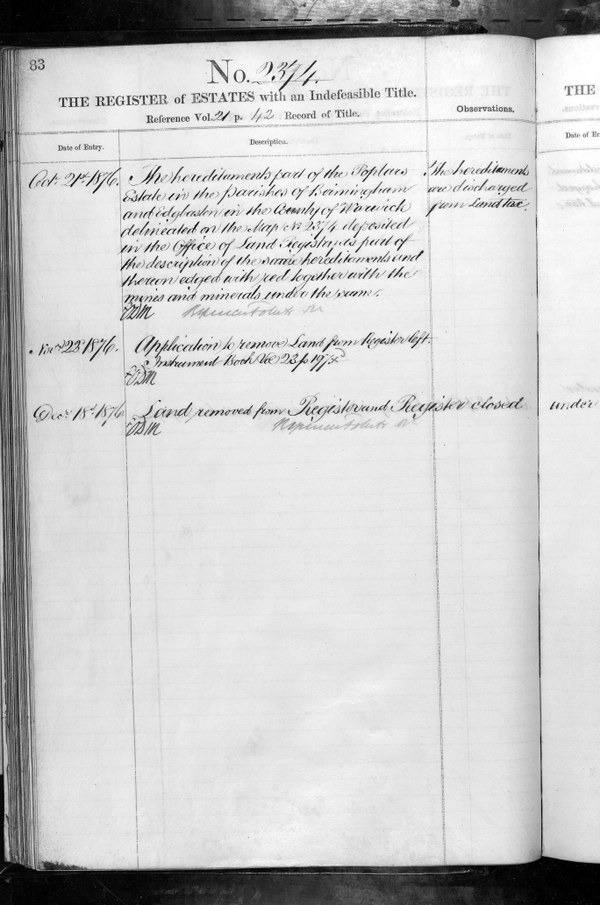 83
No. 2374.
THE REGISTER of ESTATES with an Indefeasible Title.
Reference Vol. 21 p. 42 Record of Title.
Observations.
Date of Entry.
Description.
Octr. 21st 1876.
The hereditaments part of the Poplars
Estate in the parishes of Birmingham
and Edgbaston in the County of Warwick
delineated on the Map No. 2374 deposited
in the Office of Land Registry as part of
the description of the same hereditaments and
thereon edged with red together with the
mines and minerals under the same.
The hereditaments
are discharged
from Land tax.
Novr. 23d 1876.
Application to remove Land from Register left.
Instrument Book Vol 23 p 197
Decr. 18th 1876
Land removed from Register and Register closed
THE
Date of En
under